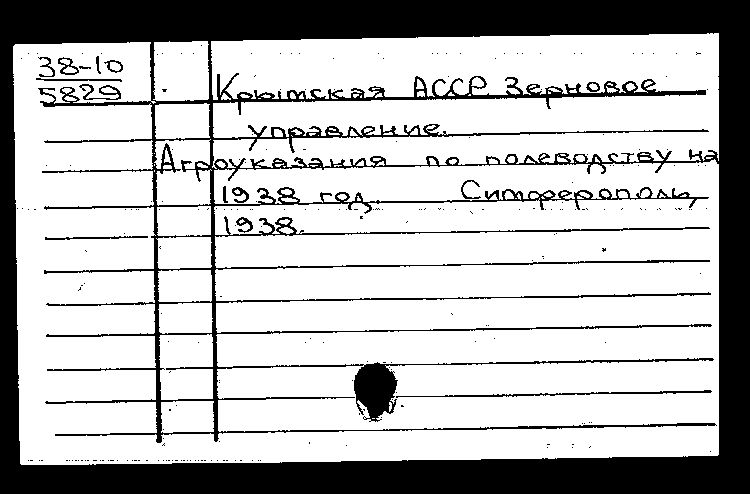 38-10
5829
Крымская АССР Зерновое
управление.
Агроуказания по полеводству на
1938 год. Симферополь,
1938.